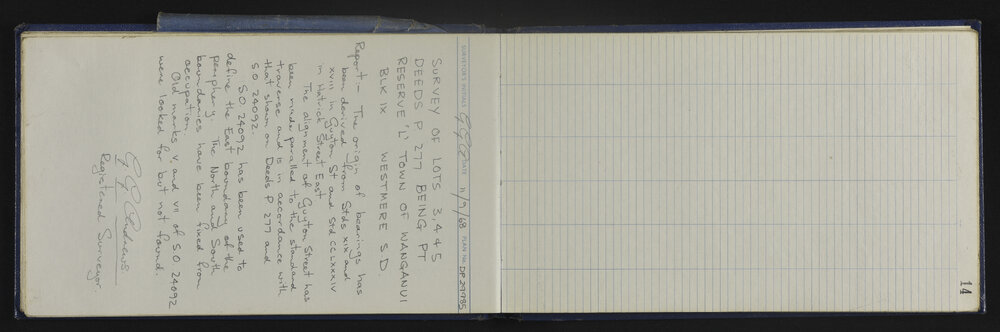 SURVEYOR'S INITIALS DATE 11/9/68 PLAN No. DP 29985
SURVEY OF LOTS 3, 4 & 5
DEEDS P. 277 BEING PT
RESERVE 'L' TOWN OF WANGANUI
BLK IX WESTMERE S.D.
Report - The origin of bearings has
been derived from Stds XIX and
XVIII in Guyton St and Std CCLXXXIV
in Hatrick Street East.
The alignment of Guyton Street has
been made parallel to the standard
traverse and is in accordance with
that shown on Deeds P 277 and
S.O 24092.
S.O. 24092 has been used to
define the East boundary of the
periphery. The North and South
boundaries have been fixed from
occupation.
Old marks V, and VII of S.O 24092
were looked for but not found.
Andrews.
Registered Surveyor
14